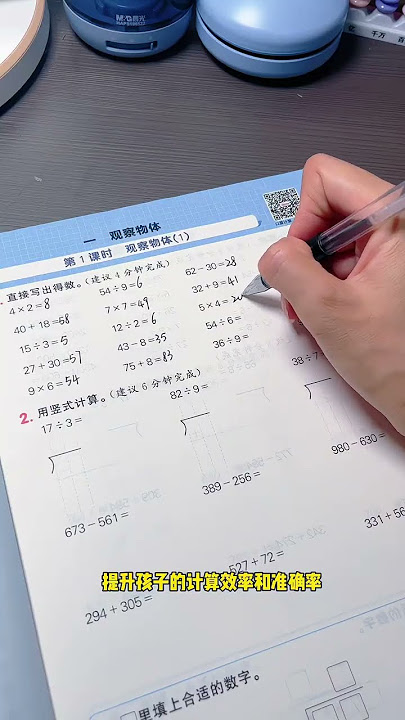 M&G 晨光
千万 百
一 观察物体
第1课时 观察物体(1)
直接写出得数。(建议4分钟完成)
4×2=8 54÷9=6 62-30=28
40+18=68 7×7=49 32+9=41
15÷3=5 12÷2=6 5×4=20
27+30=57 43-8=35 54÷6=
9×6=54 75+8=83 36÷9=
2. 用竖式计算。(建议6分钟完成)
17÷3= 82÷9= 38÷7
673-561= 389-256= 980-630=
294+305= 527+72= 331+56
提升孩子的计算效率和准确率
里填上合适的数字。